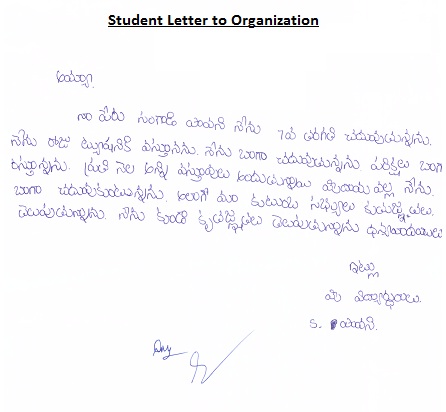 Student Letter to Organization
అయ్యా,
నా పేరు సంగాడి యామిని నేను 7వ తరగతి చదువుచున్నాను.
నేను రోజు ట్యూషన్‌కి వస్తూనను. నేను బాగా చదువుచున్నాను పరిక్షలు బాగా
రాస్తూన్నాను. ప్రతి నెల అన్ని వస్తువులు అందుచున్నాయి మీ దయ వల్ల నేను
బాగా చదువుకుంటున్నాను. అలాగే మా కుటుంబ సభ్యులు కృతజ్ఞతలు
తెలుపుచున్నారు. నేను కూడా కృతజ్ఞతలు తెలుపుచున్నాను ధన్యవాదములు
ఇట్లు
మీ విద్యార్థురాలు.
S. యామిని.